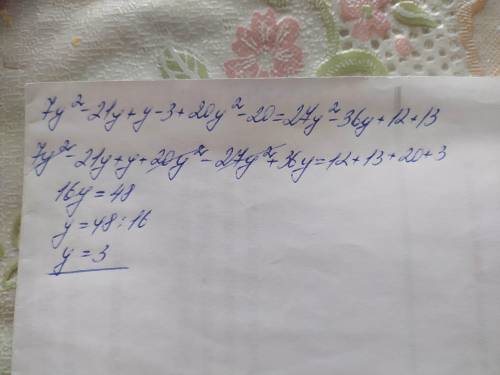 7y²-21y+y-3+20y²-20=27y²-36y+12+13
7y²-21y+y+20y²-27y²+36y=12+13+20+3
16y=48
y=48:16
y=3